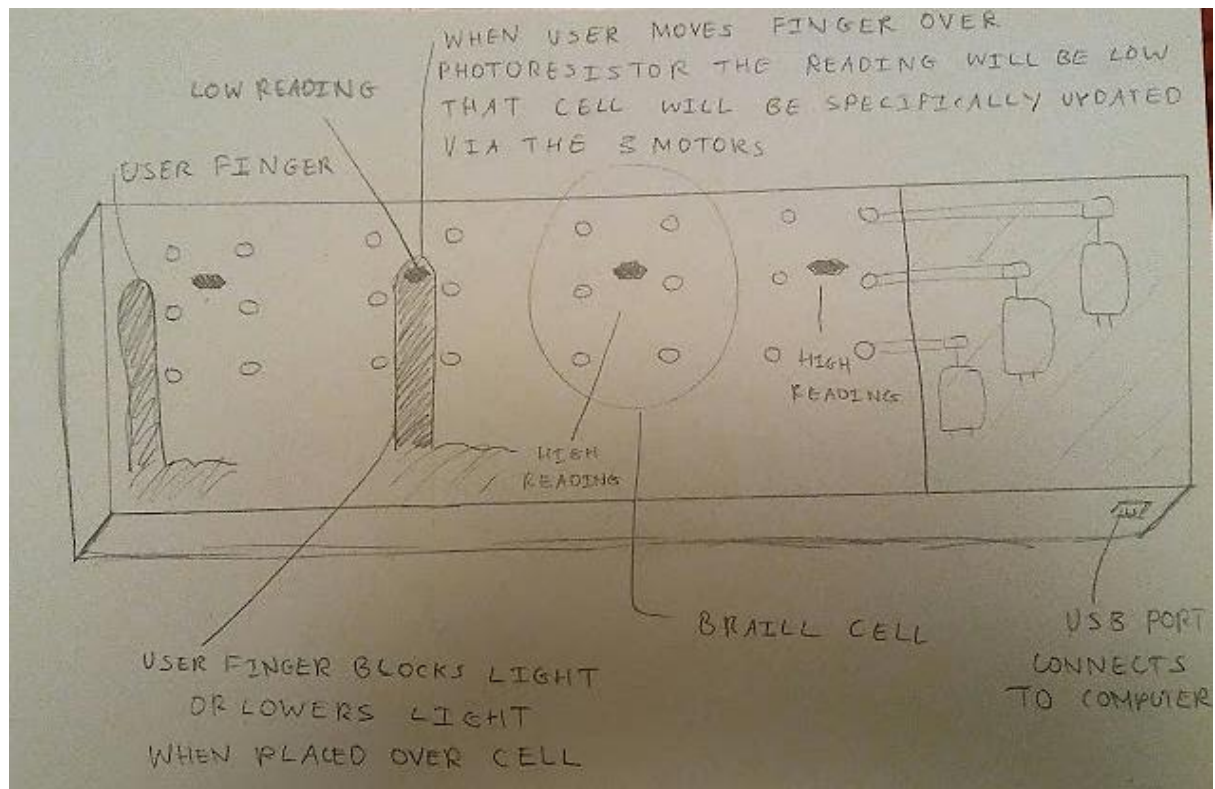 WHEN USER MOVES FINGER OVER
PHOTORESISTOR THE READING WILL BE LOW
THAT CELL WILL BE SPECIFICALLY UPDATED
VIA THE 3 MOTORS
LOW READING
USER FINGER
HIGH
READING
HIGH
READING
BRAILL CELL
USB PORT
CONNECTS
TO COMPUTER
USER FINGER BLOCKS LIGHT
OR LOWERS LIGHT
WHEN PLACED OVER CELL